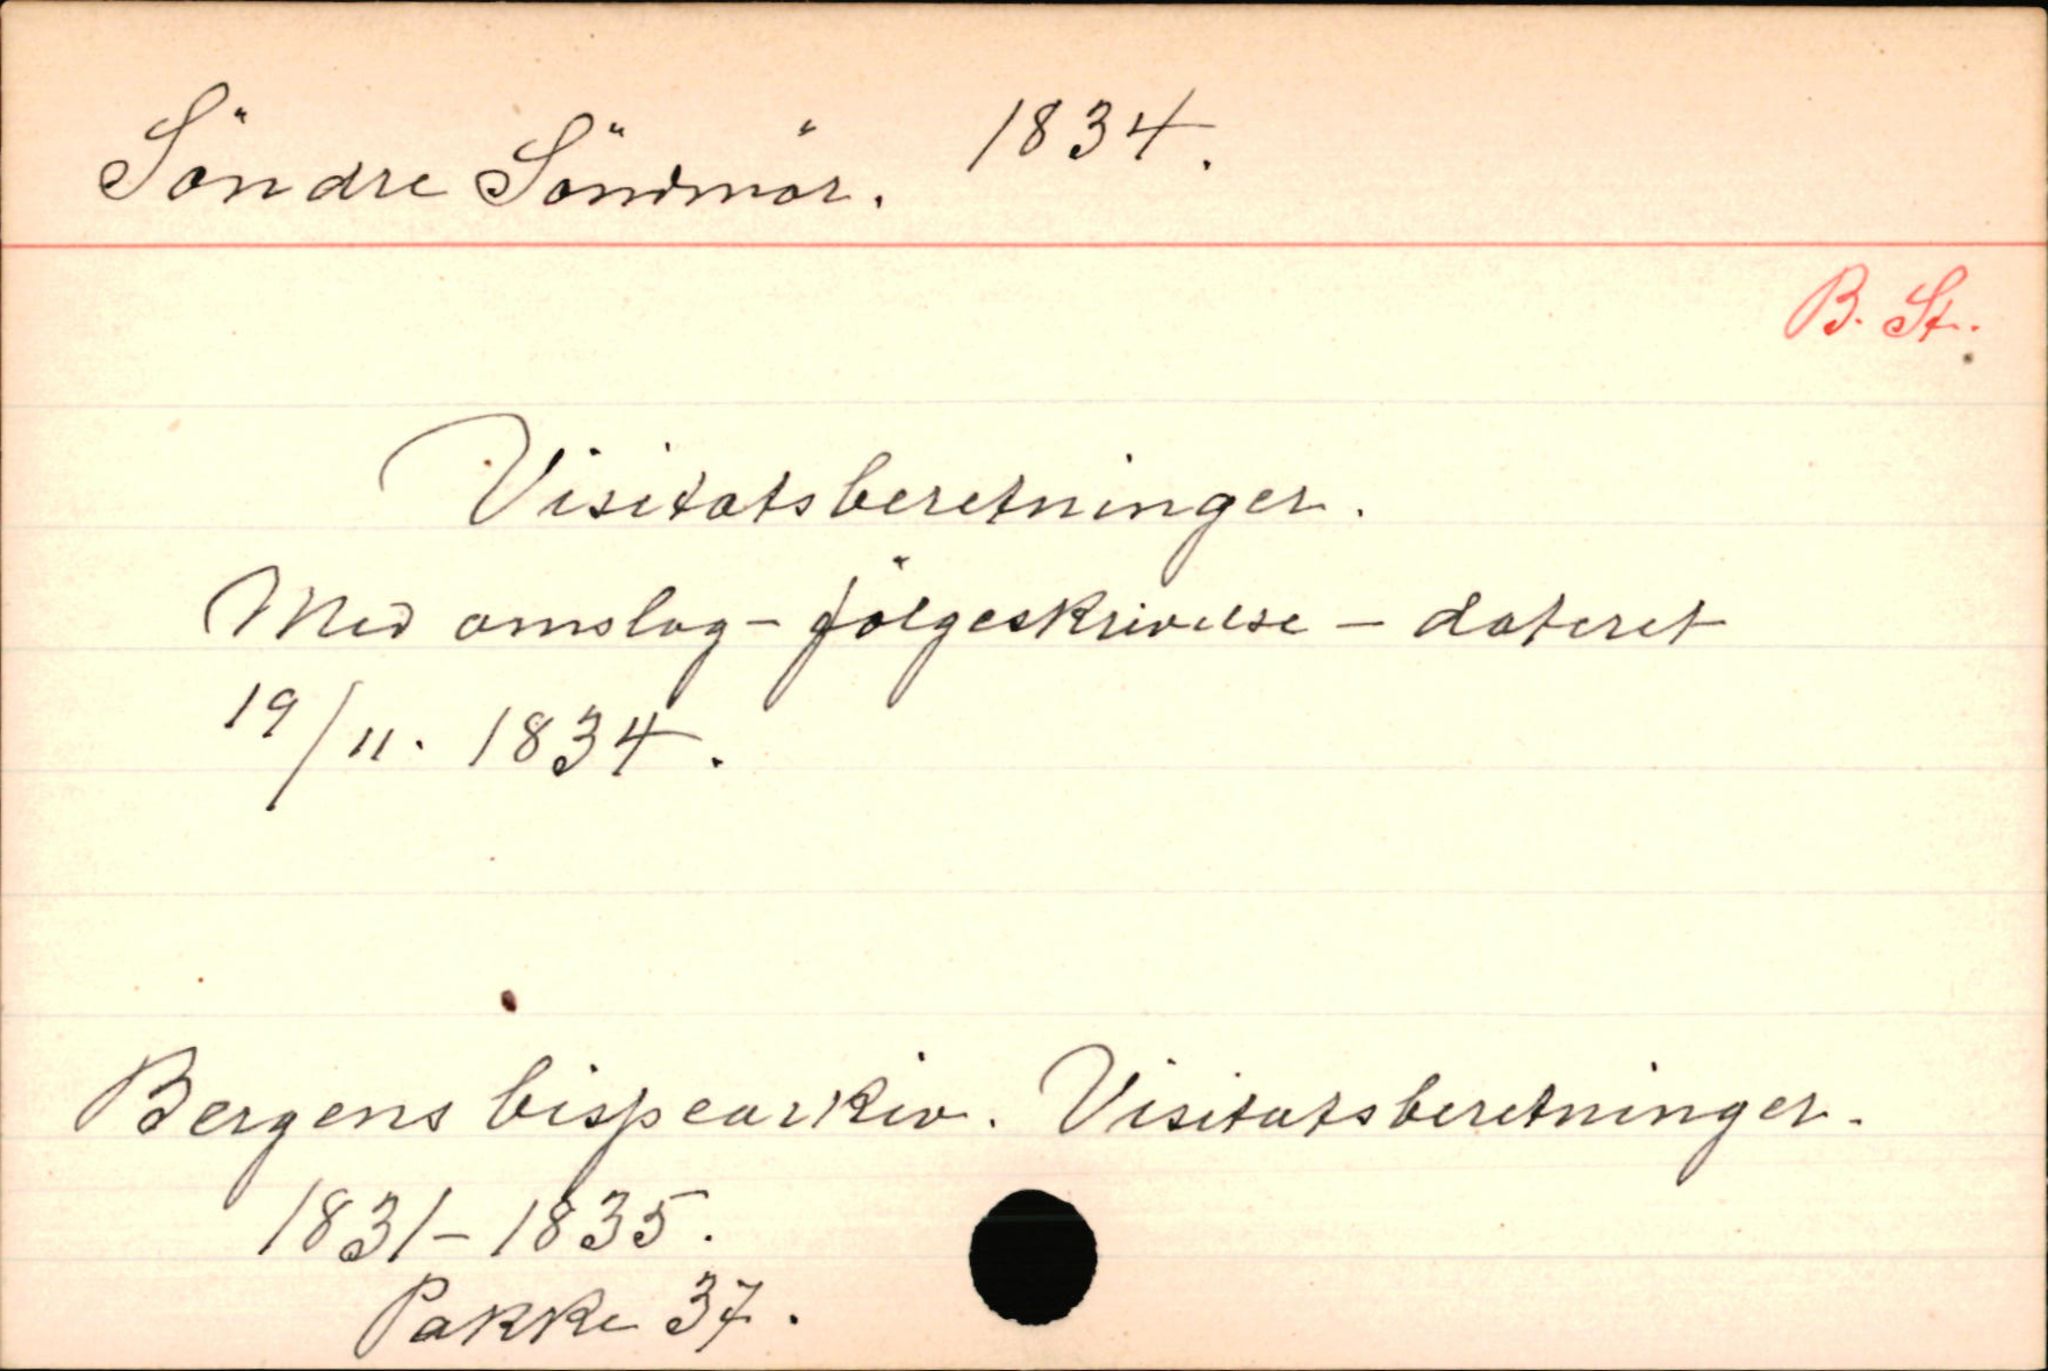 Söndre Söndmör. 1834.
B. St.
Visitatsberetninger.
Med omslag - fölgeskrivelse - dateret
19/11. 1834.
Bergens bispearkiv. Visitatsberetninger.
1831-1835.
Pakke 37.